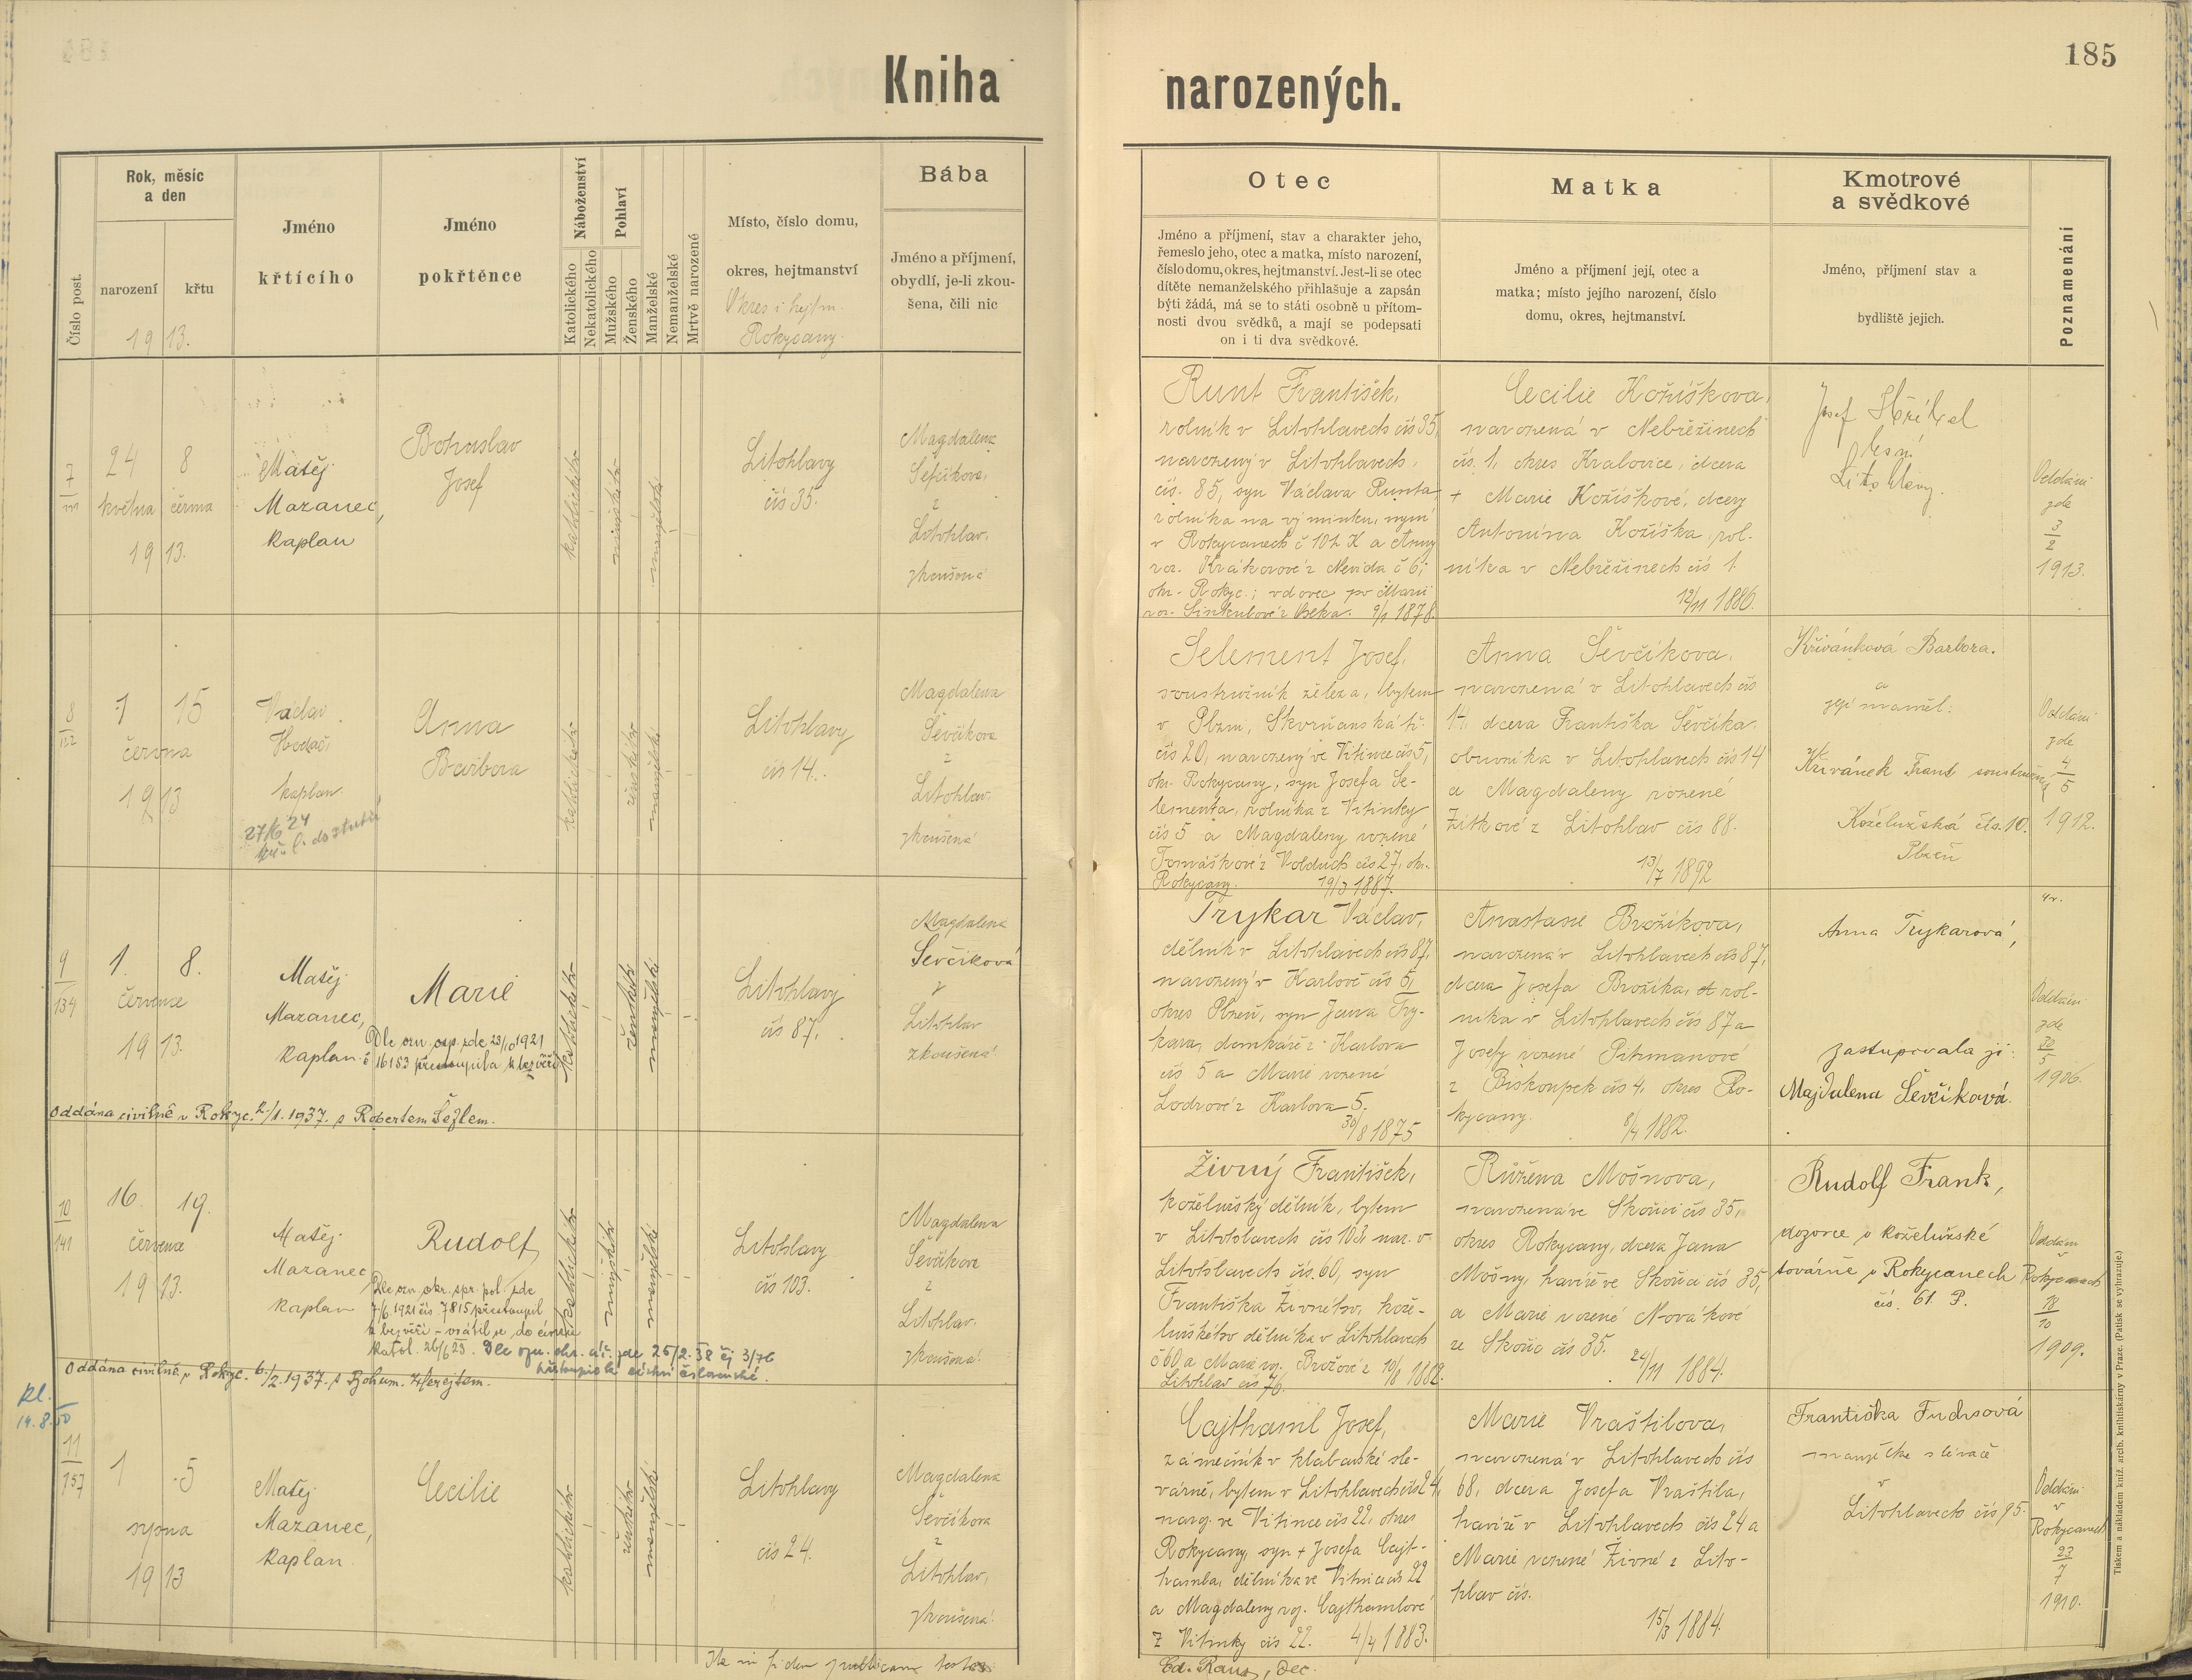 Kniha narozených.
185
Číslo post.
Rok, měsíc
a den
narození
křtu
1913.
Jméno
křtícího
Jméno
pokřtěnce
Náboženství
Katolického
Nekatolického
Pohlaví
Mužského
Ženského
Manželské
Nemanželské
Mrtvě narozené
Místo, číslo domu,
okres, hejtmanství
Okres i hejtm.
Rokycany.
Bába
Jméno a příjmení,
obydlí, je-li zkou-
šena, čili nic
Otec
Jméno a příjmení, stav a charakter jeho,
řemeslo jeho, otec a matka, místo narození,
číslo domu, okres, hejtmanství. Jest-li se otec
dítěte nemanželského přihlašuje a zapsán
býti žádá, má se to státi osobně u přítom-
nosti dvou svědků, a mají se podepsati
on i ti dva svědkové.
Matka
Jméno a příjmení její, otec a
matka; místo jejího narození, číslo
domu, okres, hejtmanství.
Kmotrové
a svědkové
Jméno, příjmení stav a
bydliště jejich.
Poznamenání
7
24 8
května června
1913.
Matěj
Mazanec,
kaplan
Bohuslav
Josef
katolického
mužského
manželské
Litohlavy
čís 35.
Magdalena
Ševčíkova,
z
Litohlav,
zkoušená
Runt František,
rolník v Litohlavech čís 35,
narozený v Litohlavech,
čís. 85, syn Václava Runta,
rolníka na výminku, nyní
v Rokycanech č 102 a Anny
roz. Krákorové z Nevida č 6,
okr. Rokyc.; vdovec po Marii
roz. Sinkulové z Oseka. 9/1 1878.
Cecilie Kožíškova,
narozená v Nebřežinech
čís. 1, okres Kralovice, dcera
+ Marie Kožíškové, dcery
Antonína Kožíška, rol-
níka v Nebřežinech čís 1.
12/11 1886.
Josef
Litohlavy.
Oddáni
zde
3/2
1913.
8
122
1 15
června
1913
Václav
kaplan.
27/6 24
Anna
Barbora
katolického
ženského
manželské
Litohlavy
čís 14.
Magdalena
Ševčíkova
z
Litohlav,
zkoušená
Selement Josef,
soustružník železa, bytem
v Plzni, Skvrňanská tř.
čís 20, narozený ve Vitince čís 5,
okr. Rokycany, syn Josefa Se-
lementa, rolníka z Vitinky
čís 5 a Magdaleny rozené
Tomáškové z Volduch čís 27, okr.
Rokycany. 19/3 1887.
Anna Ševčíkova,
narozená v Litohlavech čís
14, dcera Františka Ševčíka
obuvníka v Litohlavech čís 14
a Magdaleny rozené
Žitkové z Litohlav čís 88.
13/7 1892
Křivánková Barbora.
a
její manžel:
Křivánek Frant soustružník
Koželužská čís. 10.
Plzeň
Oddáni
zde
4/5
1912.
9
134
1. 8.
července
1913.
Matěj
Mazanec,
kaplan.
Marie
Dle ozn. osp. zde 23/10 1921
č 16153 přestoupila k bezvěří
katolického
ženského
manželské
Litohlavy
čís 87,
Magdalena
Ševčíková
z
Litohlav
zkoušená
Oddána civilně v Rokyc. 2./1. 1937. s Robertem Šeflem.
Trykar Václav,
dělník v Litohlavech čís 87,
narozený v Karlově čís 5,
okres Plzeň, syn Jana Try-
kara, domkáře z Karlova
čís 5 a Marie rozené
Lodrové z Karlova 5.
30/8 1875
Anastasie Brožíkova,
narozená v Litohlavech čís 87,
dcera Josefa Brožíka, rol-
níka v Litohlavech čís 87 a
Josefy rozené Pitrmanové
z Biskoupek čís 4, okres Ro-
kycany. 8/4 1882.
Anna Trykarová,
zastupovala ji:
Majdalena Ševčíková.
Oddáni
zde
5
1906.
10
141
16. 19.
července
1913.
Matěj
Mazanec
kaplan
Rudolf
Dle ozn. okr. spr. pol. zde
7/6. 1921 čís. 7815 přestoupil
k bezvěří - vrátil se do církve
katol. 26/6 25. Dle ozn. okr. úř. zde 25/2. 38 čj 3/76
přistoupil k církvi českoslovanské.
katolického
mužského
manželské
Litohlavy
čís 103.
Magdalena
Ševčíkova
z
Litohlav,
zkoušená
Oddána civilně v Rokyc. 6./2. 1937. s Bohum.
Živný František,
koželužský dělník, bytem
v Litohlavech čís 103 nar. v
Litohlavech čís. 60, syn
Františka Živného, kože-
lužského dělníka v Litohlavech
č 60 a Marie roz. Brožové z 10/8 1882.
Litohlav čís 76.
Růžena Mošnova,
narozená ve Skořici čís 35,
okres Rokycany, dcera Jana
Mošny, havíře ve Skořici čís 35,
a Marie rozené Novákové
ze Skořic čís 35.
24/11 1884.
Rudolf Frank,
dozorce v koželužské
továrně v Rokycanech
čís. 61. P.
Oddáni
v
Rokycanech
18/10
1909.
kl.
14.8.50
11
157
1 5
srpna
1913
Matěj
Mazanec,
kaplan.
Cecilie
katolického
ženského
manželské
Litohlavy
čís 24.
Magdalena
Ševčíkova
z
Litohlav,
zkoušená
Cajthaml Josef,
zámečník v klabavské slé-
várně, bytem v Litohlavech čís 24,
naroz. ve Vitince čís 22, okres
Rokycany, syn + Josefa Cajt-
hamla, dělníka ve Vitince čís 22
a Magdaleny roz. Cajthamlové
z Vitinky čís 22. 4/4 1883.
Marie Vraštilova,
narozená v Litohlavech čís
68, dcera Josefa Vraštila,
havíře v Litohlavech čís 24 a
Marie rozené Živné z Lito-
hlav čís.
15/3 1884.
Františka Fuchsová
manželka slévače
v
Litohlavech čís 95.
Oddáni
v
Rokycanech
23/7
1910.
Ita in fidem publicam testor
Ed. Raus, Dec.
Tiskem a nákladem kníž. arcib. knihtiskárny v Praze. (Patisk se vyhrazuje.)